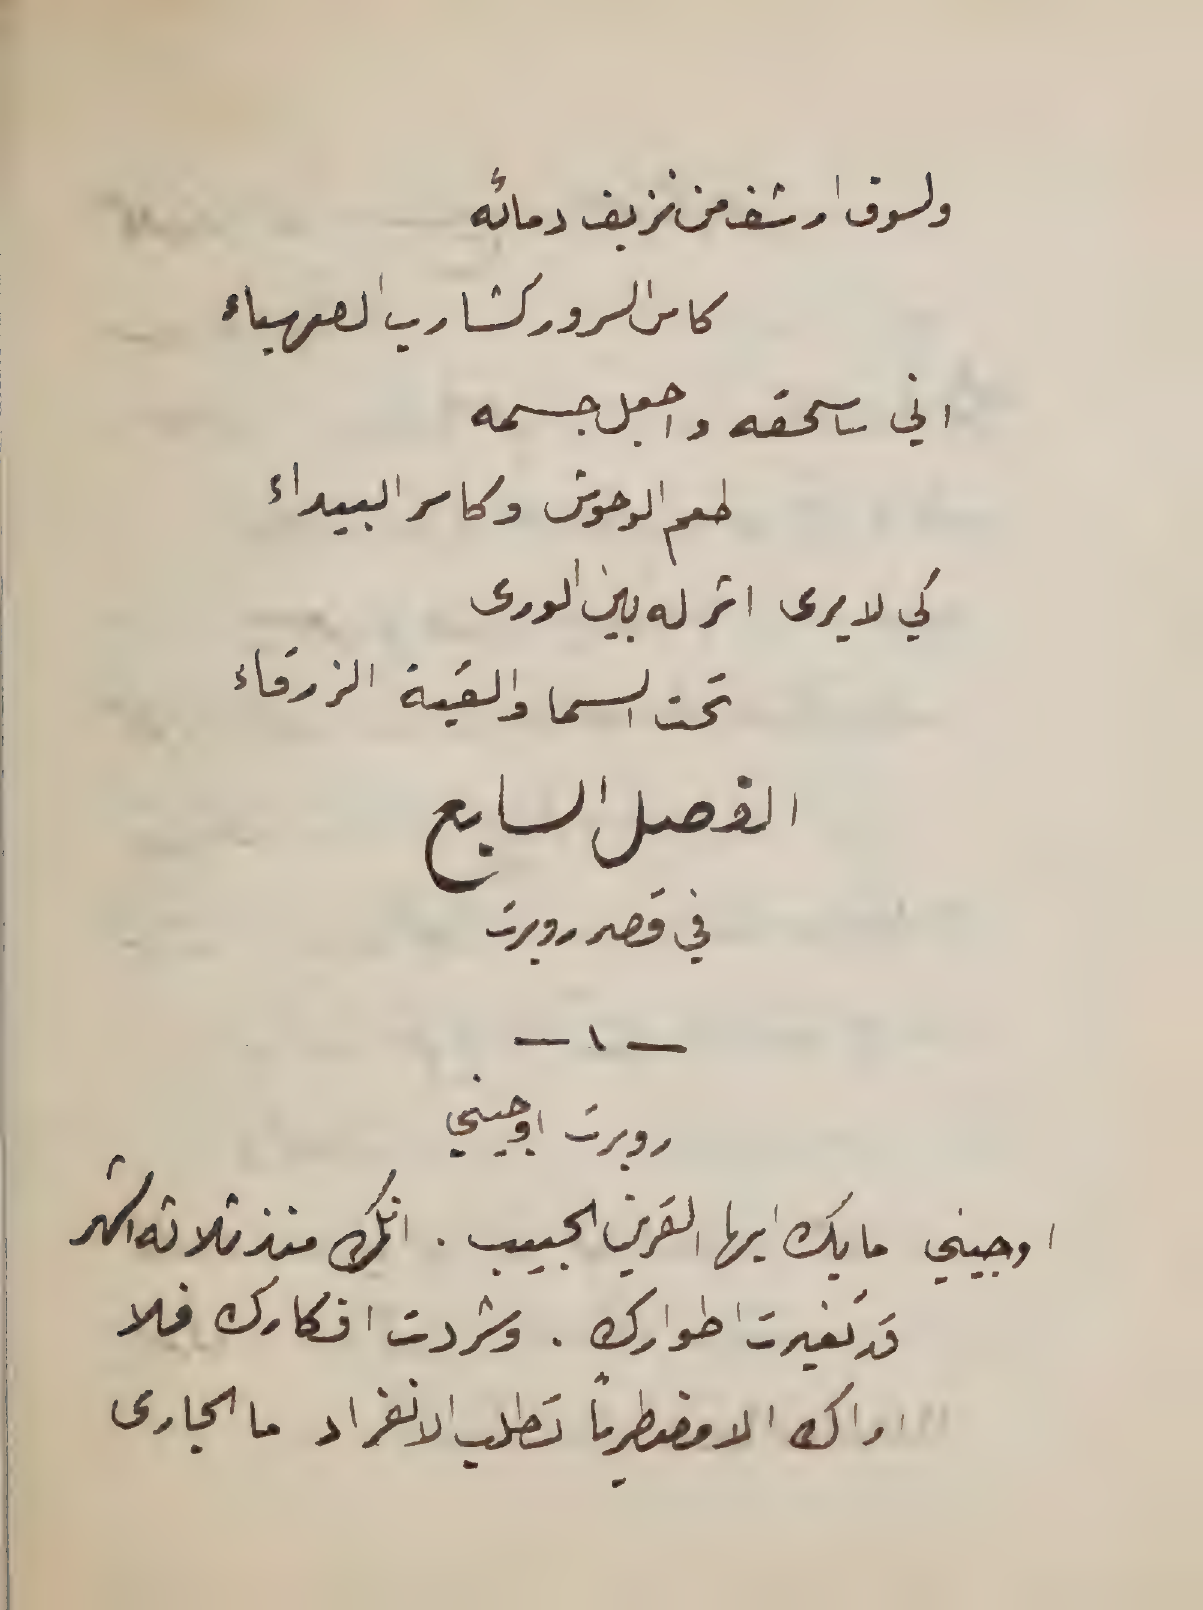 ولسوف ارشف من نزيف دمائه
كاس السرور كشارب الصهباء
اني ساسحقه واجعل جسمه
طعم الوحوش وكاسر البيداء
كي لا يرى اثر له بين الورى
تحت السما والقبة الزرقاء
الفصل السابع
في قصر روبرت
— ١ —
روبرت اوجيني
اوجيني ما بك ايها القرين الحبيب . انك منذ ثلاثه اشهر
قد تغيرت اطوارك . وشردت افكارك فلا
اراك الا مضطرباً تطلب الانفراد ما الجارى